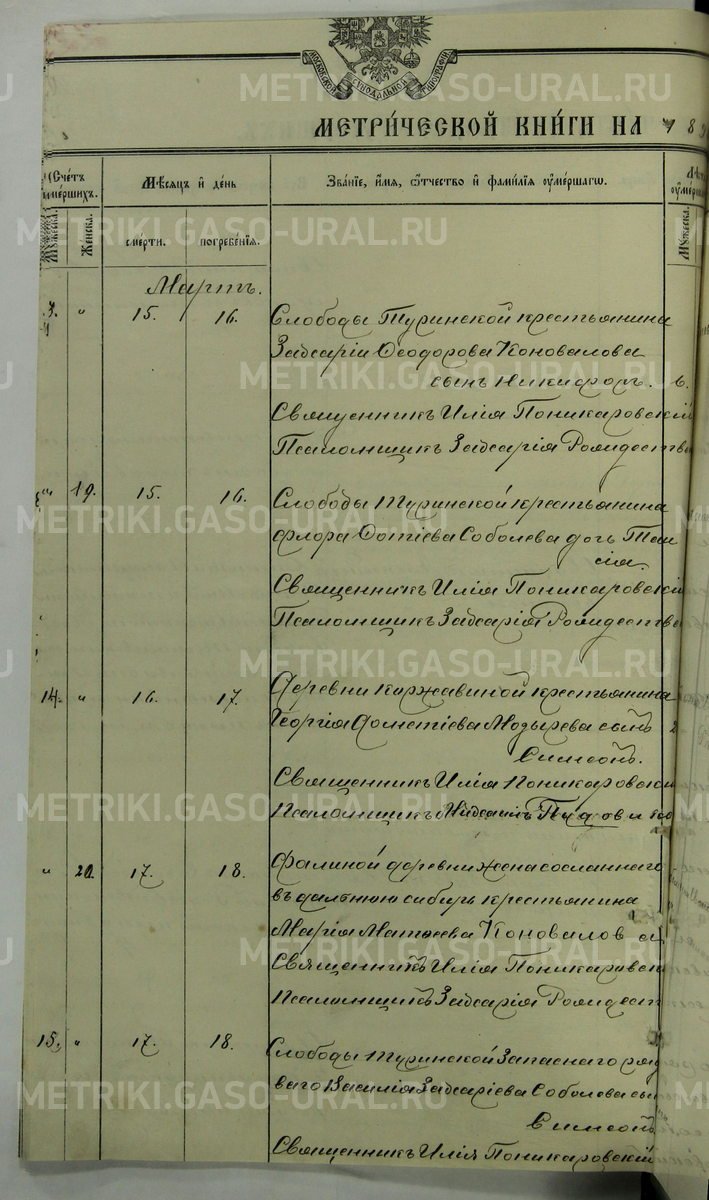 МОСКОВСКОЙ СѴНОДАЛЬНОЙ ТИПОГРАФІИ
МЕТРИ́ЧЕСКОЙ КНИ́ГИ НА 189
Счétъ ᲂумéршихъ.
Мѣ́сяцъ и҆ де́нь
Зва́нїе, и҆́мѧ, ѻ҆́тчество и҆ фами́лїѧ ᲂу҆ме́ршагѡ.
Лѣ́т
ᲂу҆ме́р
Мꙋ́жеска.
Же́нска.
сме́рти.
погребе́нїѧ.
Мꙋ́жеска.
Мартъ.
" 15. 16. Слободы Туринской крестьянина
Захарія Ѳеодорова Коновалова
сынъ Никифоръ.
Священникъ Илія Поникаровскій
Псаломщикъ Захарія Рождеств
" 19. 15. 16. Слободы Туринской крестьянина
Флора Фотіева Соболева дочь Таи
сія.
Священникъ Илія Поникаровскій
Псаломщикъ Захарія Рождеств
14. " 16. 17. Деревни Коржавиной крестьянина
Георгія Дометіева Мозырева сынъ 2
Симеонъ.
Священникъ Илія Поникаровскій
Псаломщикъ
" 20. 17. 18. Фалиной деревни жена сосланнаго
въ дальнюю сибирь крестьянина
Марія Матвеева Коновалова
Священникъ Илія Поникаровск
Псаломщикъ Захарія Рождест
15. " 17. 18. Слободы Туринской Запаснаго ряд
ваго Василія Захаріева Соболева сы
Симеонъ
Священникъ Илія Поникаровскій
METRIKI.GASO-URAL.RU